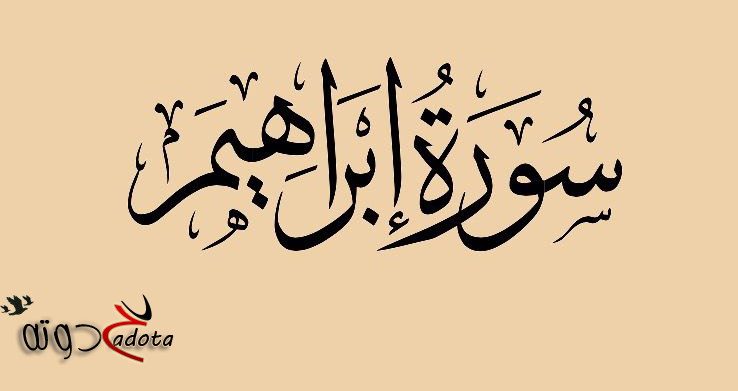 سُورَةُ إِبْرَاهِيمَ
حدوته
adota